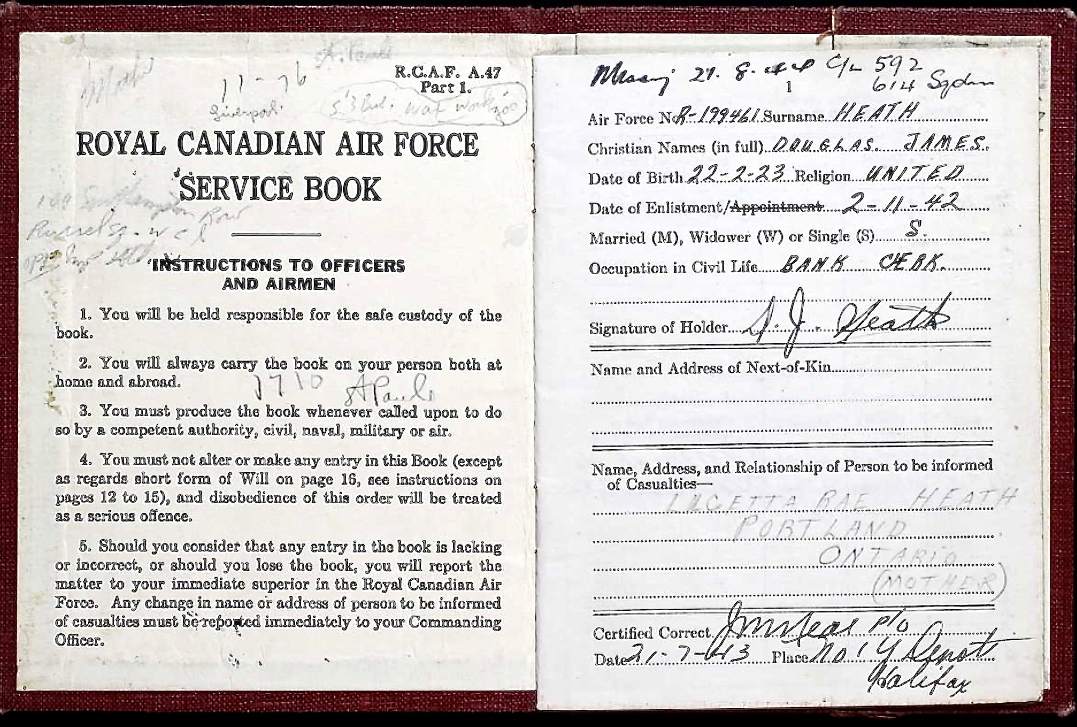 11-76
R.C.A.F. A.47
Part 1.
Liverpool
ROYAL CANADIAN AIR FORCE
SERVICE BOOK
INSTRUCTIONS TO OFFICERS
AND AIRMEN
1. You will be held responsible for the safe custody of the
book.
2. You will always carry the book on your person both at
home and abroad.
1710 St Pauls
3. You must produce the book whenever called upon to do
so by a competent authority, civil, naval, military or air.
4. You must not alter or make any entry in this Book (except
as regards short form of Will on page 16, see instructions on
pages 12 to 15), and disobedience of this order will be treated
as a serious offence.
5. Should you consider that any entry in the book is lacking
or incorrect, or should you lose the book, you will report the
matter to your immediate superior in the Royal Canadian Air
Force. Any change in name or address of person to be informed
of casualties must be reported immediately to your Commanding
Officer.
Missing 27. 8. 44 C/L 592
614 Sqdn
1
Air Force No. R-199461 Surname HEATH
Christian Names (in full) DOUGLAS. JAMES.
Date of Birth 22-2-23 Religion UNITED
Date of Enlistment/Appointment 2-11-42
Married (M), Widower (W) or Single (S) S.
Occupation in Civil Life BANK CLERK.
Signature of Holder D. J. Heath
Name and Address of Next-of-Kin
Name, Address, and Relationship of Person to be informed
of Casualties—
LUCETTA RAE HEATH
PORTLAND
ONTARIO
(MOTHER)
Certified Correct P/O
Date 21-7-43 Place No 1 Y Depot
Halifax